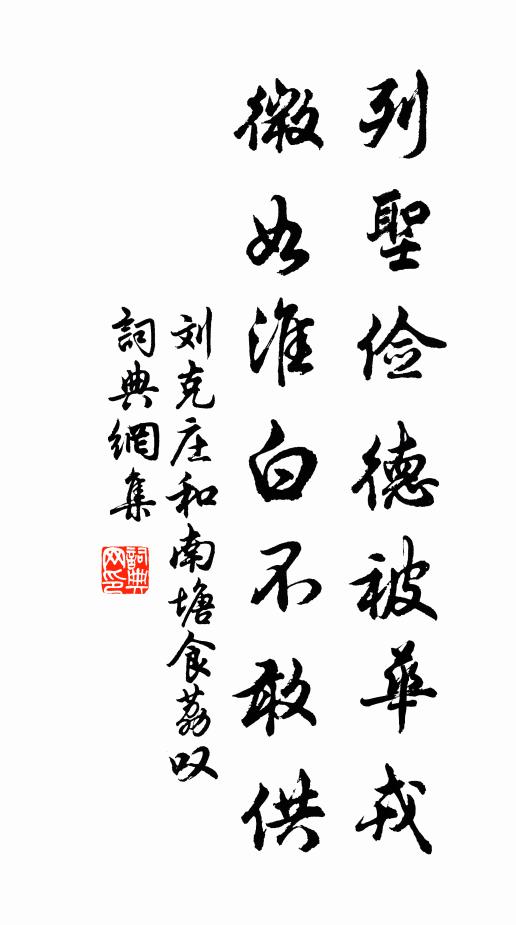 列聖俭德被華戎
微如淮白不敢供
刘克庄和南塘食荔叹
詞典網集
詞典网印